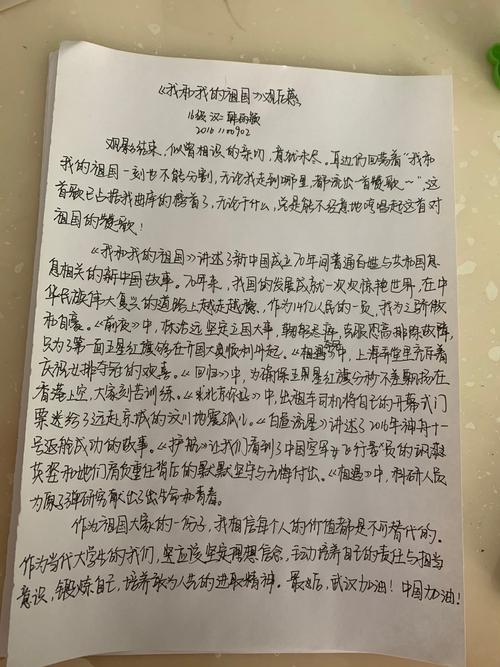 《我和我的祖国》观后感
16级 汉二
20161100902
观影结束，似曾相识的亲切，意犹未尽。耳边仍回荡着“我和
我的祖国一刻也不能分割，无论我走到哪里，都流出一首赞歌～”，这
首歌已占据我曲库的榜首了，无论干什么，总是能不经意地哼唱起这首对
祖国的赞歌！
《我和我的祖国》讲述了新中国成立70年间普通百姓与共和国息
息相关的新中国故事。70年来，我国的发展成就一次次惊艳世界，在中
华民族伟大复兴的道路上越走越稳，作为14亿人民的一员，我为之骄傲
和自豪。《前夜》中，林治远坚定立国大事，克服恐高排除故障，
只为了第一面五星红旗能够在开国大典顺利升起。《相遇》中，上海弄堂里齐乐着
庆祝女排夺冠的欢喜。《回归》中，为确保五星红旗分秒不差飘扬在
香港上空，大家刻苦训练。《北京你好》中，出租车司机将自己的开幕式门
票送给了远赴京城的汶川地震孤儿。《白昼流星》讲述了2016年神舟十一
号返航成功的故事。《护航》让我们看到了中国空军女飞行员的飒爽
英姿和她们肩负重任背后的默默坚守与无悔付出。《相遇》中，科研人员
为原子弹研究献出了生命和青春。
作为祖国大家的一份子，我相信每个人的价值都是不可替代的。
作为当代大学生的我们，更应该坚定理想信念，主动培养自己的责任与担当
意识，锻炼自己，培养敢为人先的进取精神。最后，武汉加油！中国加油！